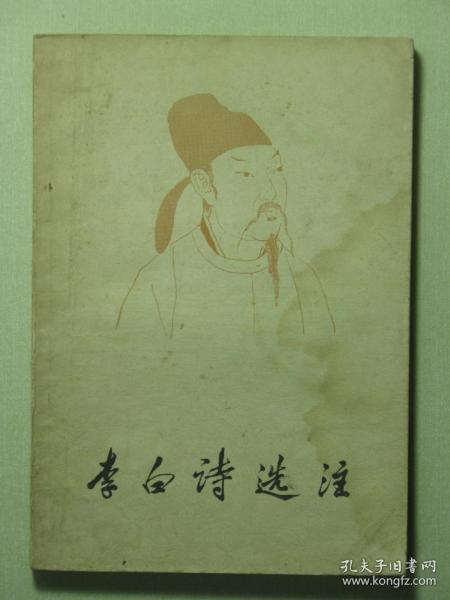 李白诗选注
孔夫子旧书网
www.kongfz.com